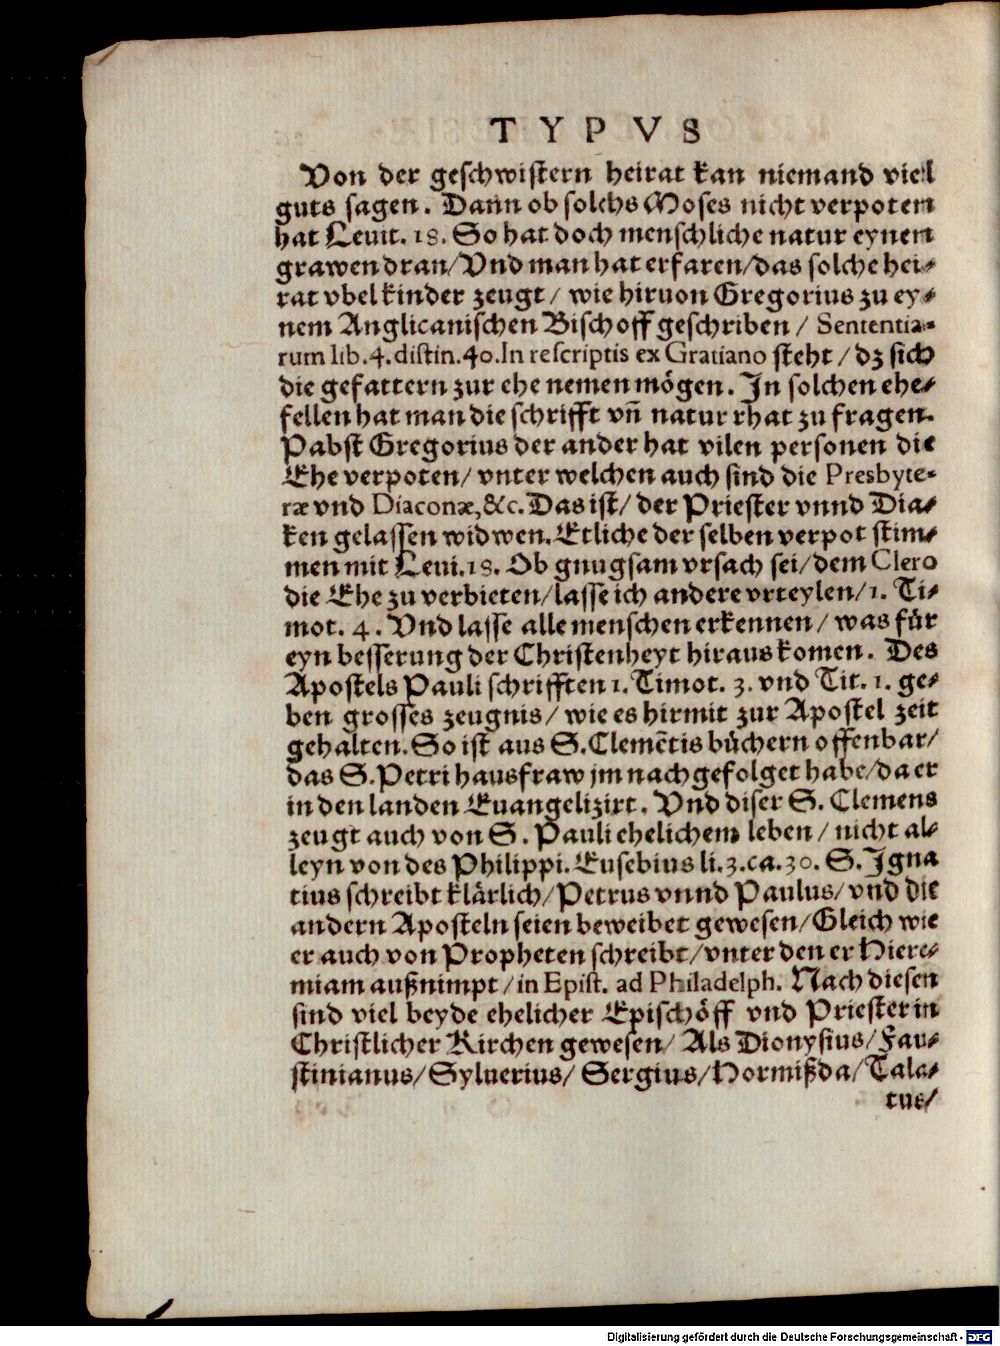 TYPVS
Von der geschwistern heirat kan niemand viel
guts sagen. Dann ob solchs Moses nicht verpoten
hat Leuit. 18. So hat doch menschliche natur eynen
grawen dran/Vnd man hat erfaren/das solche hei-
rat vbel kinder zeugt/ wie hiruon Gregorius zu ey-
nem Anglicanischen Bischoff geschriben/ Sententia-
rum lib.4.distin.40.In rescriptis ex Gratiano steht/dz sich
die gefattern zur ehe nemen mögen. In solchen ehe-
fellen hat man die schrifft vñ natur rhat zu fragen.
Pabst Gregorius der ander hat vilen personen die
Ehe verpoten/ vnter welchen auch sind die Presbyte-
ræ vnd Diaconæ,&c. Das ist/ der Priester vnnd Dia-
ken gelassen widwen. Etliche der selben verpot stim-
men mit Leui.18. Ob gnugsam vrsach sei/dem Clero
die Ehe zu verbieten/lasse ich andere vrteylen/1. Ti-
mot. 4. Vnd lasse alle menschen erkennen/ was für
eyn besserung der Christenheyt hiraus komen. Des
Apostels Pauli schrifften 1. Timot. 3. vnd Tit. 1. ge-
ben grosses zeugnis/ wie es hirmit zur Apostel zeit
gehalten. So ist aus S.Clemētis büchern offenbar/
das S.Petri hausfraw jm nachgefolget habe/da er
in den landen Euangelizirt. Vnd diser S. Clemens
zeugt auch von S. Pauli ehelichem leben/ nicht al-
leyn von des Philippi. Eusebius li.3.ca.30. S. Igna
tius schreibt klärlich/Petrus vnnd Paulus/ vnd die
andern Aposteln seien beweibet gewesen/Gleich wie
er auch von Propheten schreibt/vnter den er Hiere-
miam außnimpt/in Epist. ad Philadelph. Nach diesen
sind viel beyde ehelicher Epischöff vnd Priester in
Christlicher Kirchen gewesen/ Als Dionysius/Fau-
stinianus/Syluerius/ Sergius/Hormißda/Tala-
tus/
Digitalisierung gefördert durch die Deutsche Forschungsgemeinschaft - DFG